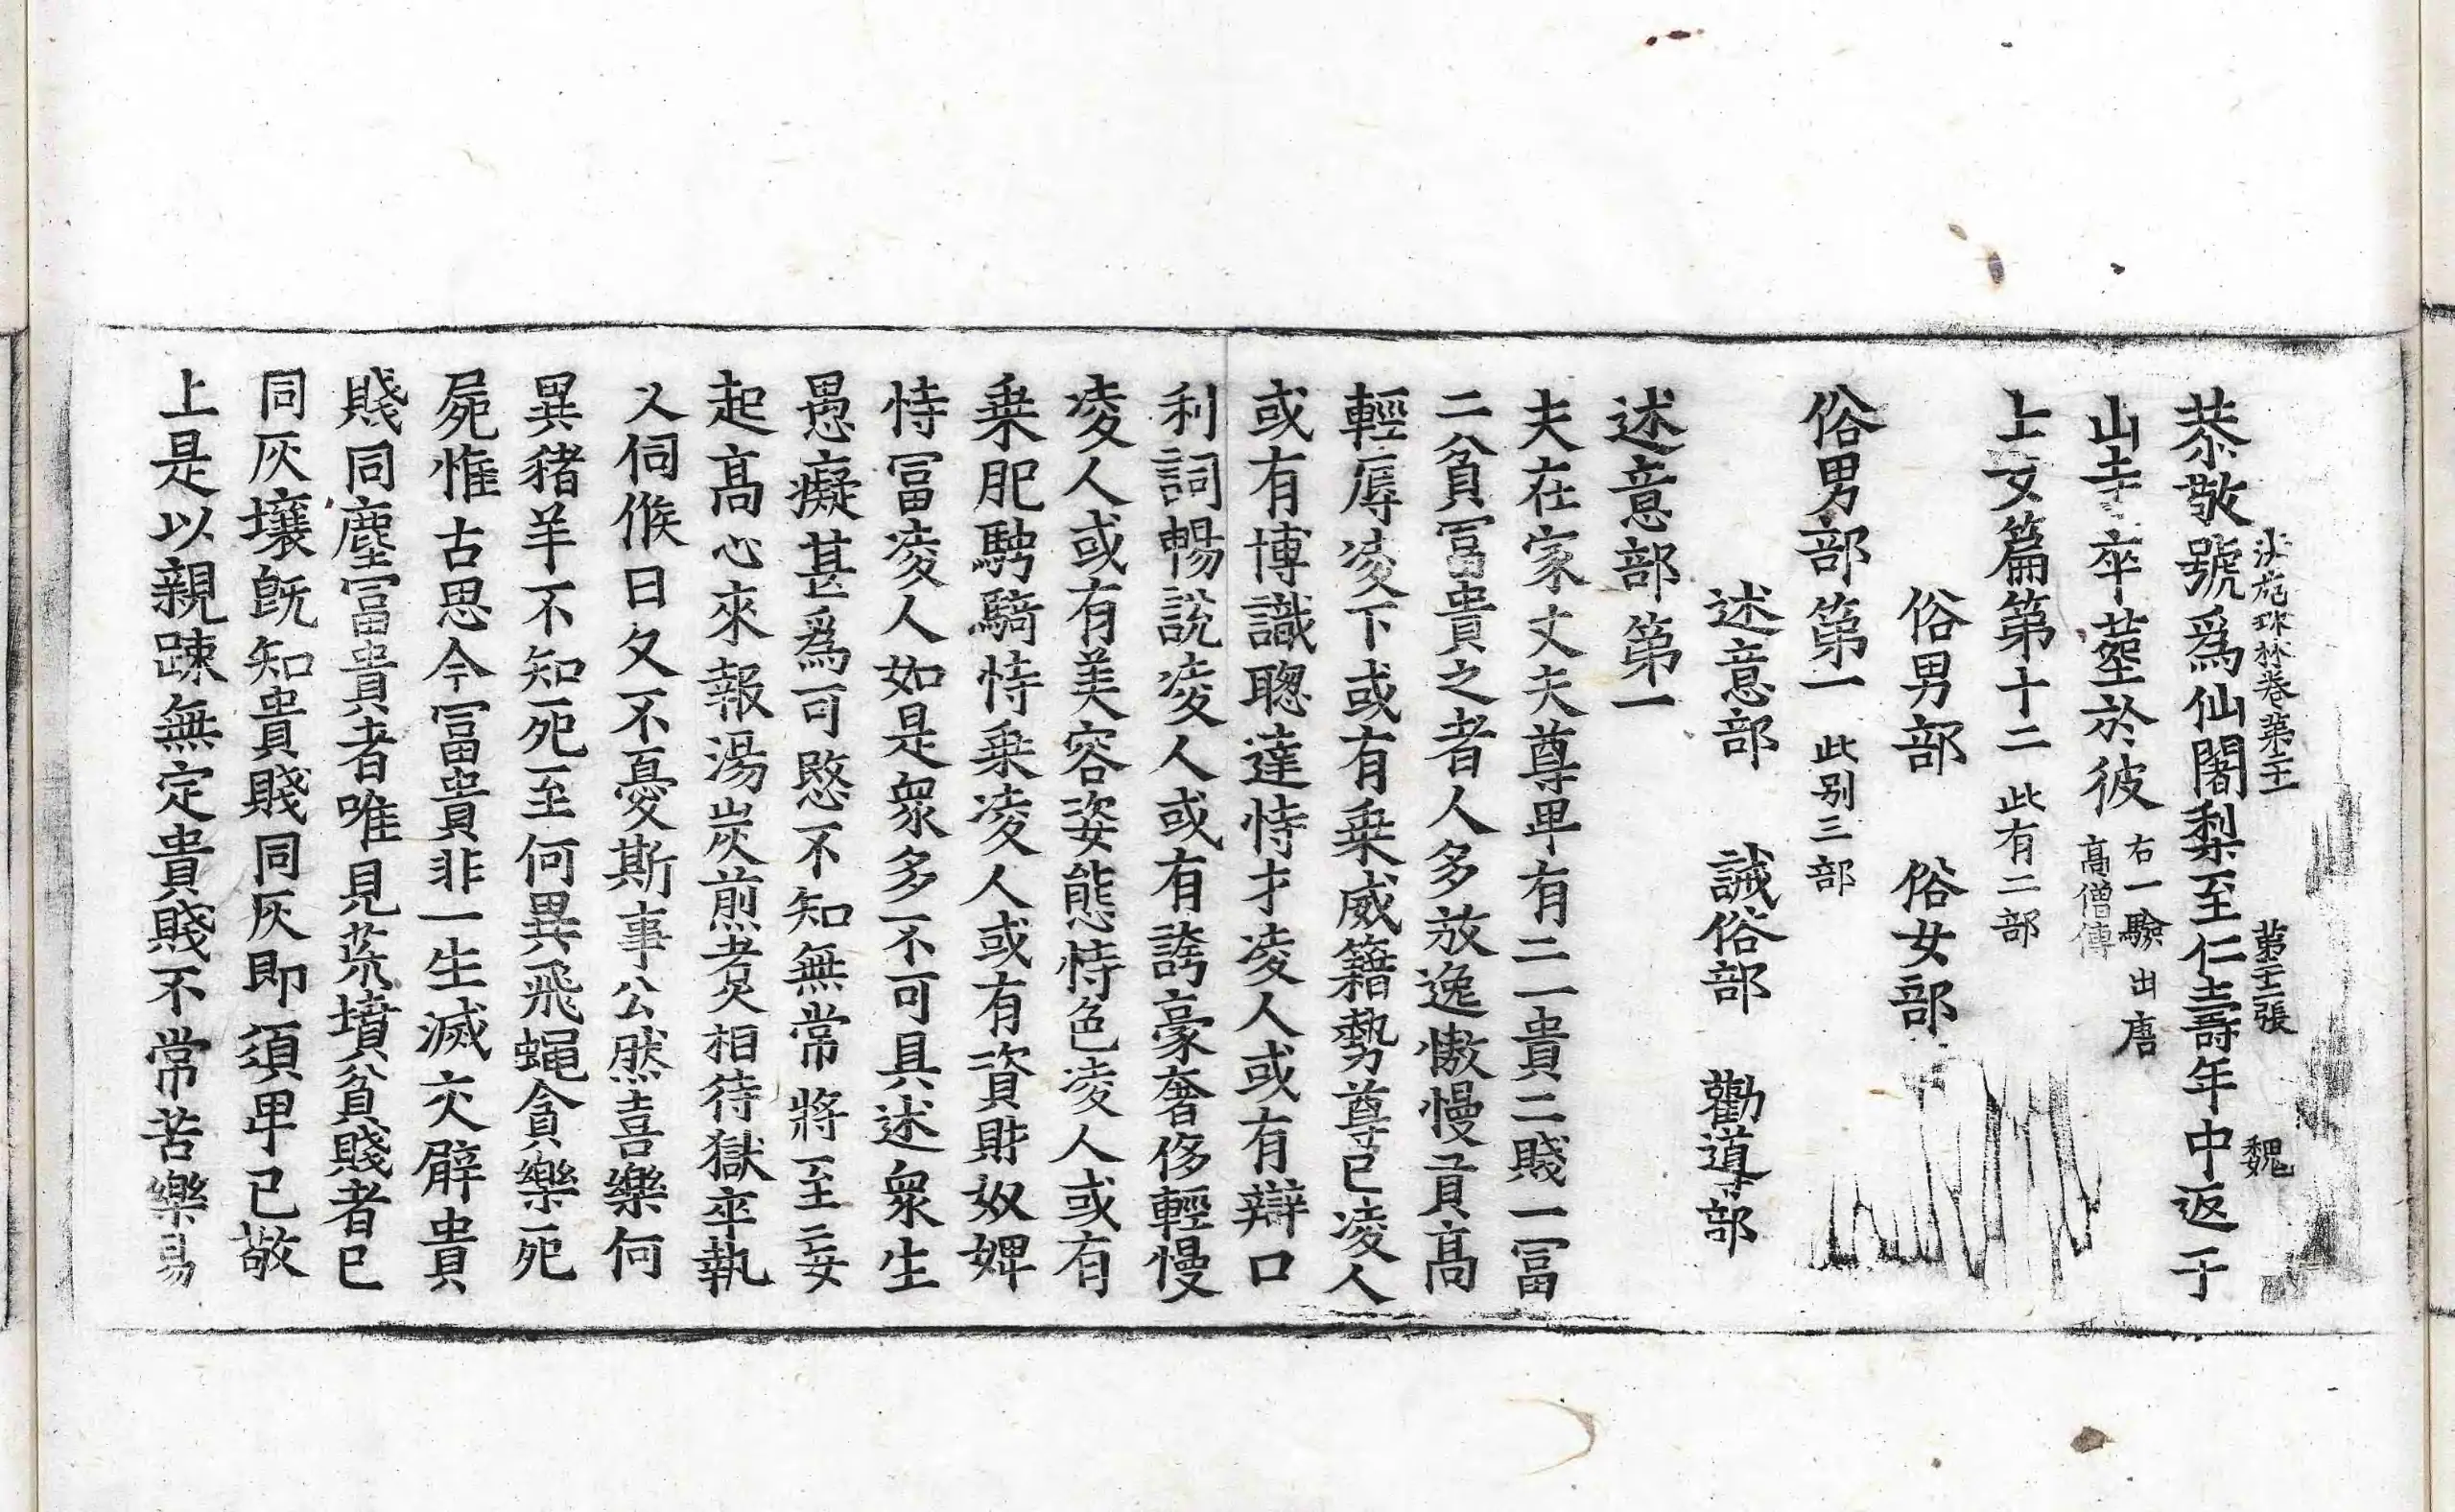 法苑珠林卷第 第 張 魏
恭敬號爲仙闍梨至仁壽年中返于
山寺卒葬於彼 右一驗出唐
高僧傳
士女篇第十二 此有二部
俗男部 俗女部
俗男部第一 此別三部
述意部 誡俗部 勸導部
述意部第一
夫在家丈夫尊卑有二一貴二賤一冨
二貧冨貴之者人多放逸憿慢貢髙
輕辱凌下或有乗威籍勢尊已凌人
或有博識聦達恃才凌人或有辯口
利詞暢說凌人或有誇豪奢侈輕慢
凌人或有美容姿態恃色凌人或有
乗肥騁騎恃乗凌人或有資財奴婢
恃冨凌人如是衆多不可具述衆生
愚癡甚爲可愍不知無常將至妄
起髙心來報湯炭煎煑相待獄卒執
乂伺候日夂不憂斯事公然喜樂何
異猪羊不知死至何異飛蝇貪樂死
屍惟古思今冨貴非一生滅交臂貴
賤同塵冨貴者唯見荒墳貧賤者已
同灰壤旣知貴賤同灰即須卑已敬
上是以親踈無定貴賤不常苦樂易